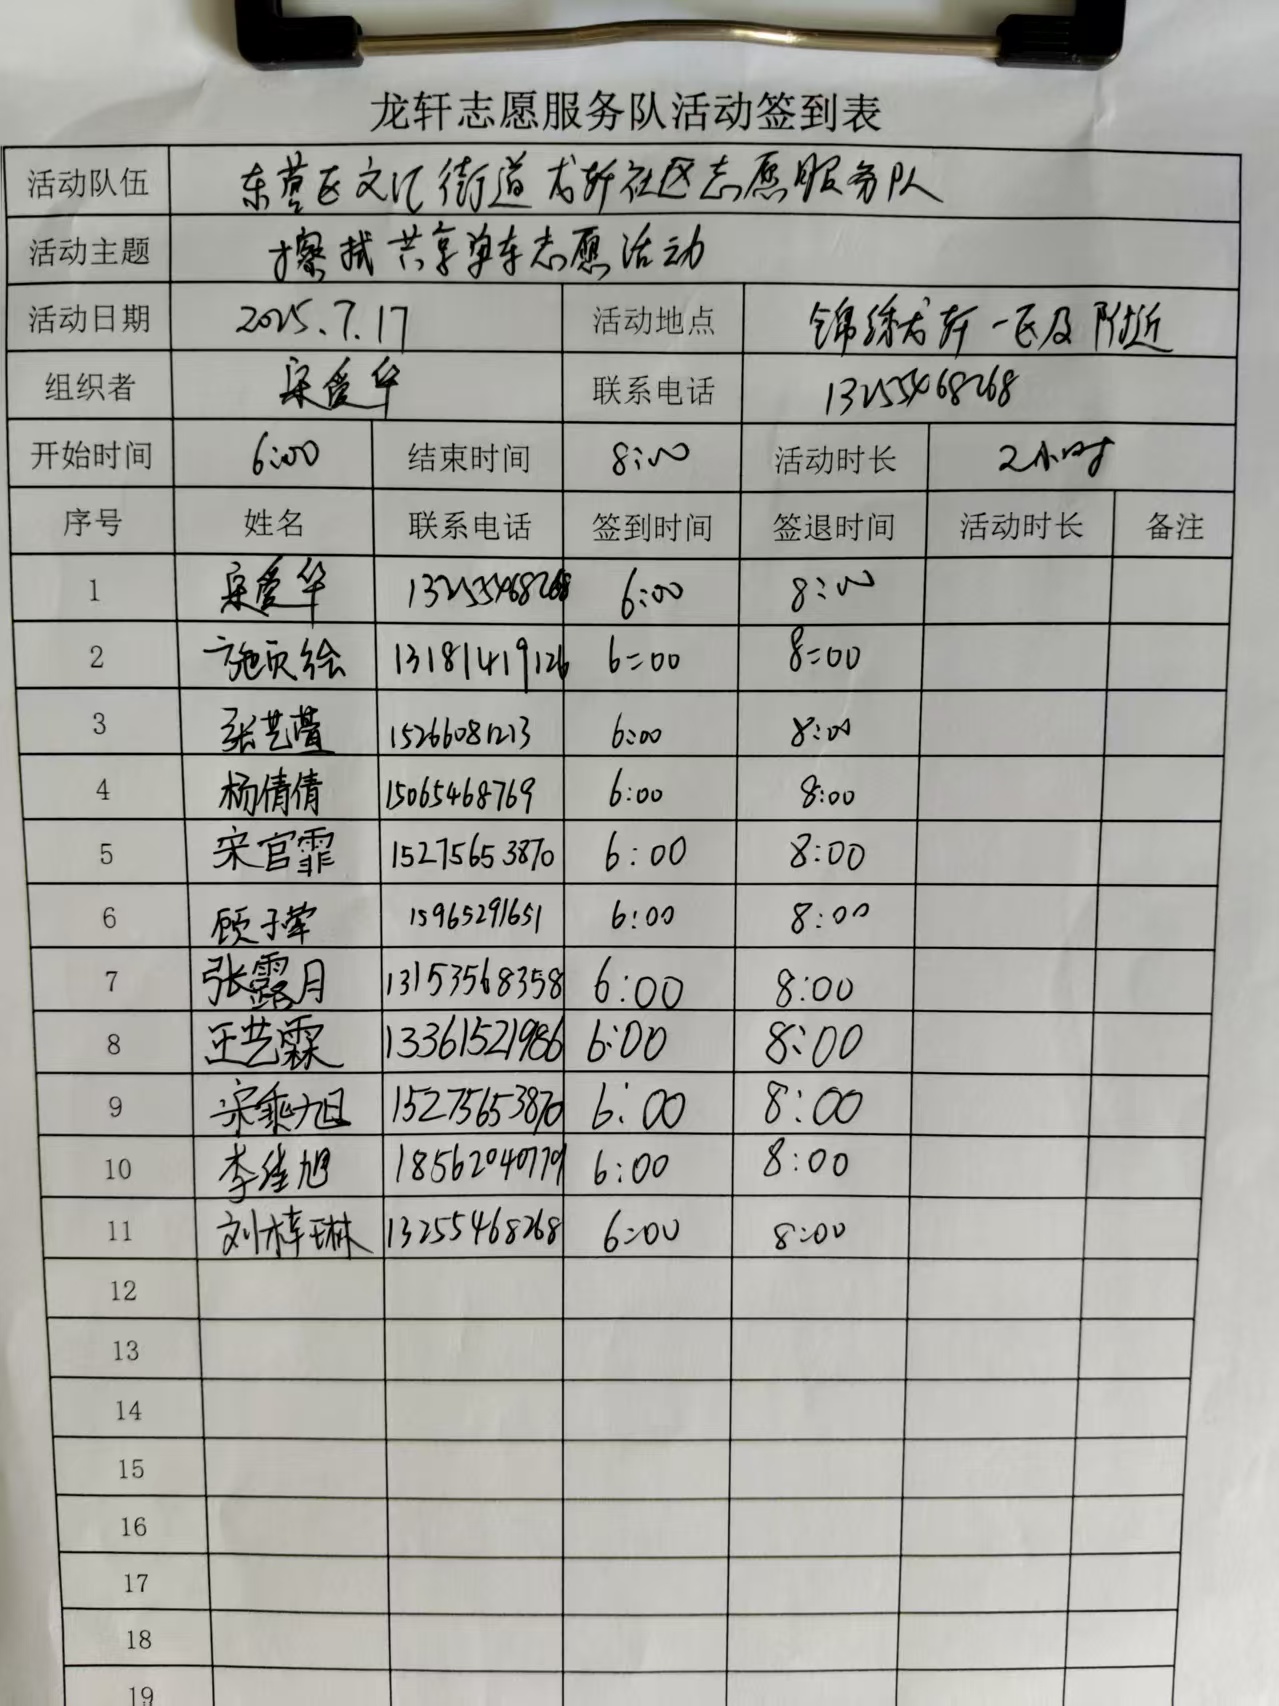 龙轩志愿服务队活动签到表
活动队伍 东营区文汇街道龙轩社区志愿服务队
活动主题 擦拭共享单车志愿活动
活动日期 2025.7.17 活动地点 锦绣龙轩一区及附近
组织者 宋爱华 联系电话 13255468268
开始时间 6:00 结束时间 8:00 活动时长 2小时
序号 姓名 联系电话 签到时间 签退时间 活动时长 备注
1 宋爱华 13255468268 6:00 8:00
2 施贝绘 13181419126 6:00 8:00
3 张艺萱 15266081213 6:00 8:00
4 杨倩倩 15065468769 6:00 8:00
5 宋官霏 15275653870 6:00 8:00
6 顾子荦 15965291651 6:00 8:00
7 张露月 13153568358 6:00 8:00
8 王艺霖 13361521986 6:00 8:00
9 宋乘旭 15275653870 6:00 8:00
10 李佳旭 18562040779 6:00 8:00
11 刘梓琳 13255468268 6:00 8:00
12
13
14
15
16
17
18
19